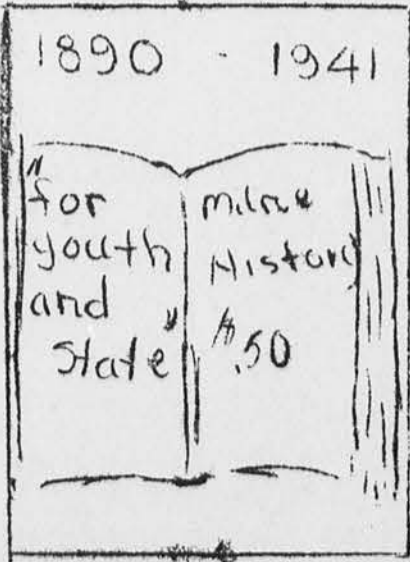 1890 - 1941
"for
youth
and
State"
Milne
History
$.50